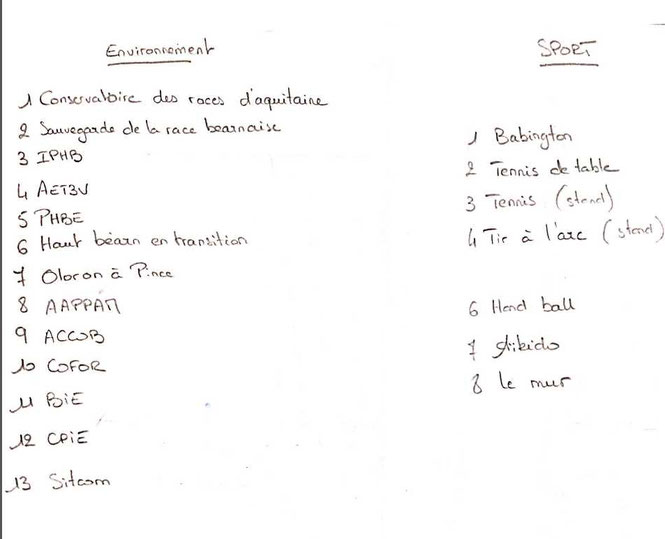 Environnement
1 Conservatoire des races d'aquitaine
2 Sauvegarde de la race bearnaise
3 IPHB
4 AET3V
5 PHBE
6 Haut béarn en transition
7 Oloron à Pince
8 AAPPAM
9 ACCOB
10 COFOR
11 BiE
12 CPiE
13 Sitcom
SPORT
1 Babington
2 Tennis de table
3 Tennis (stand)
4 Tir à l'arc (stand)
6 Hand ball
7 Aikido
8 le mur